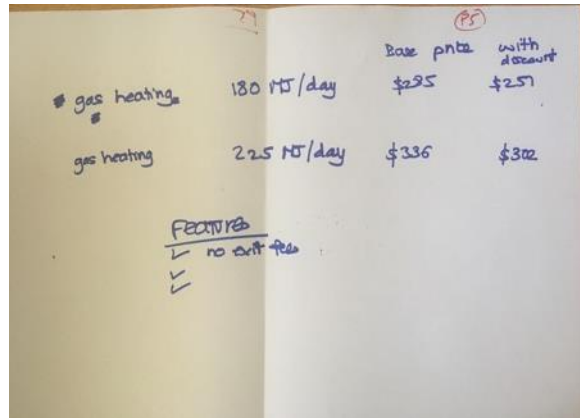 P5
Base price with
discount
gas heating 180 MJ/day $285 $257
gas heating 225 MJ/day $336 $302
Features
✓ no exit fees
✓
✓